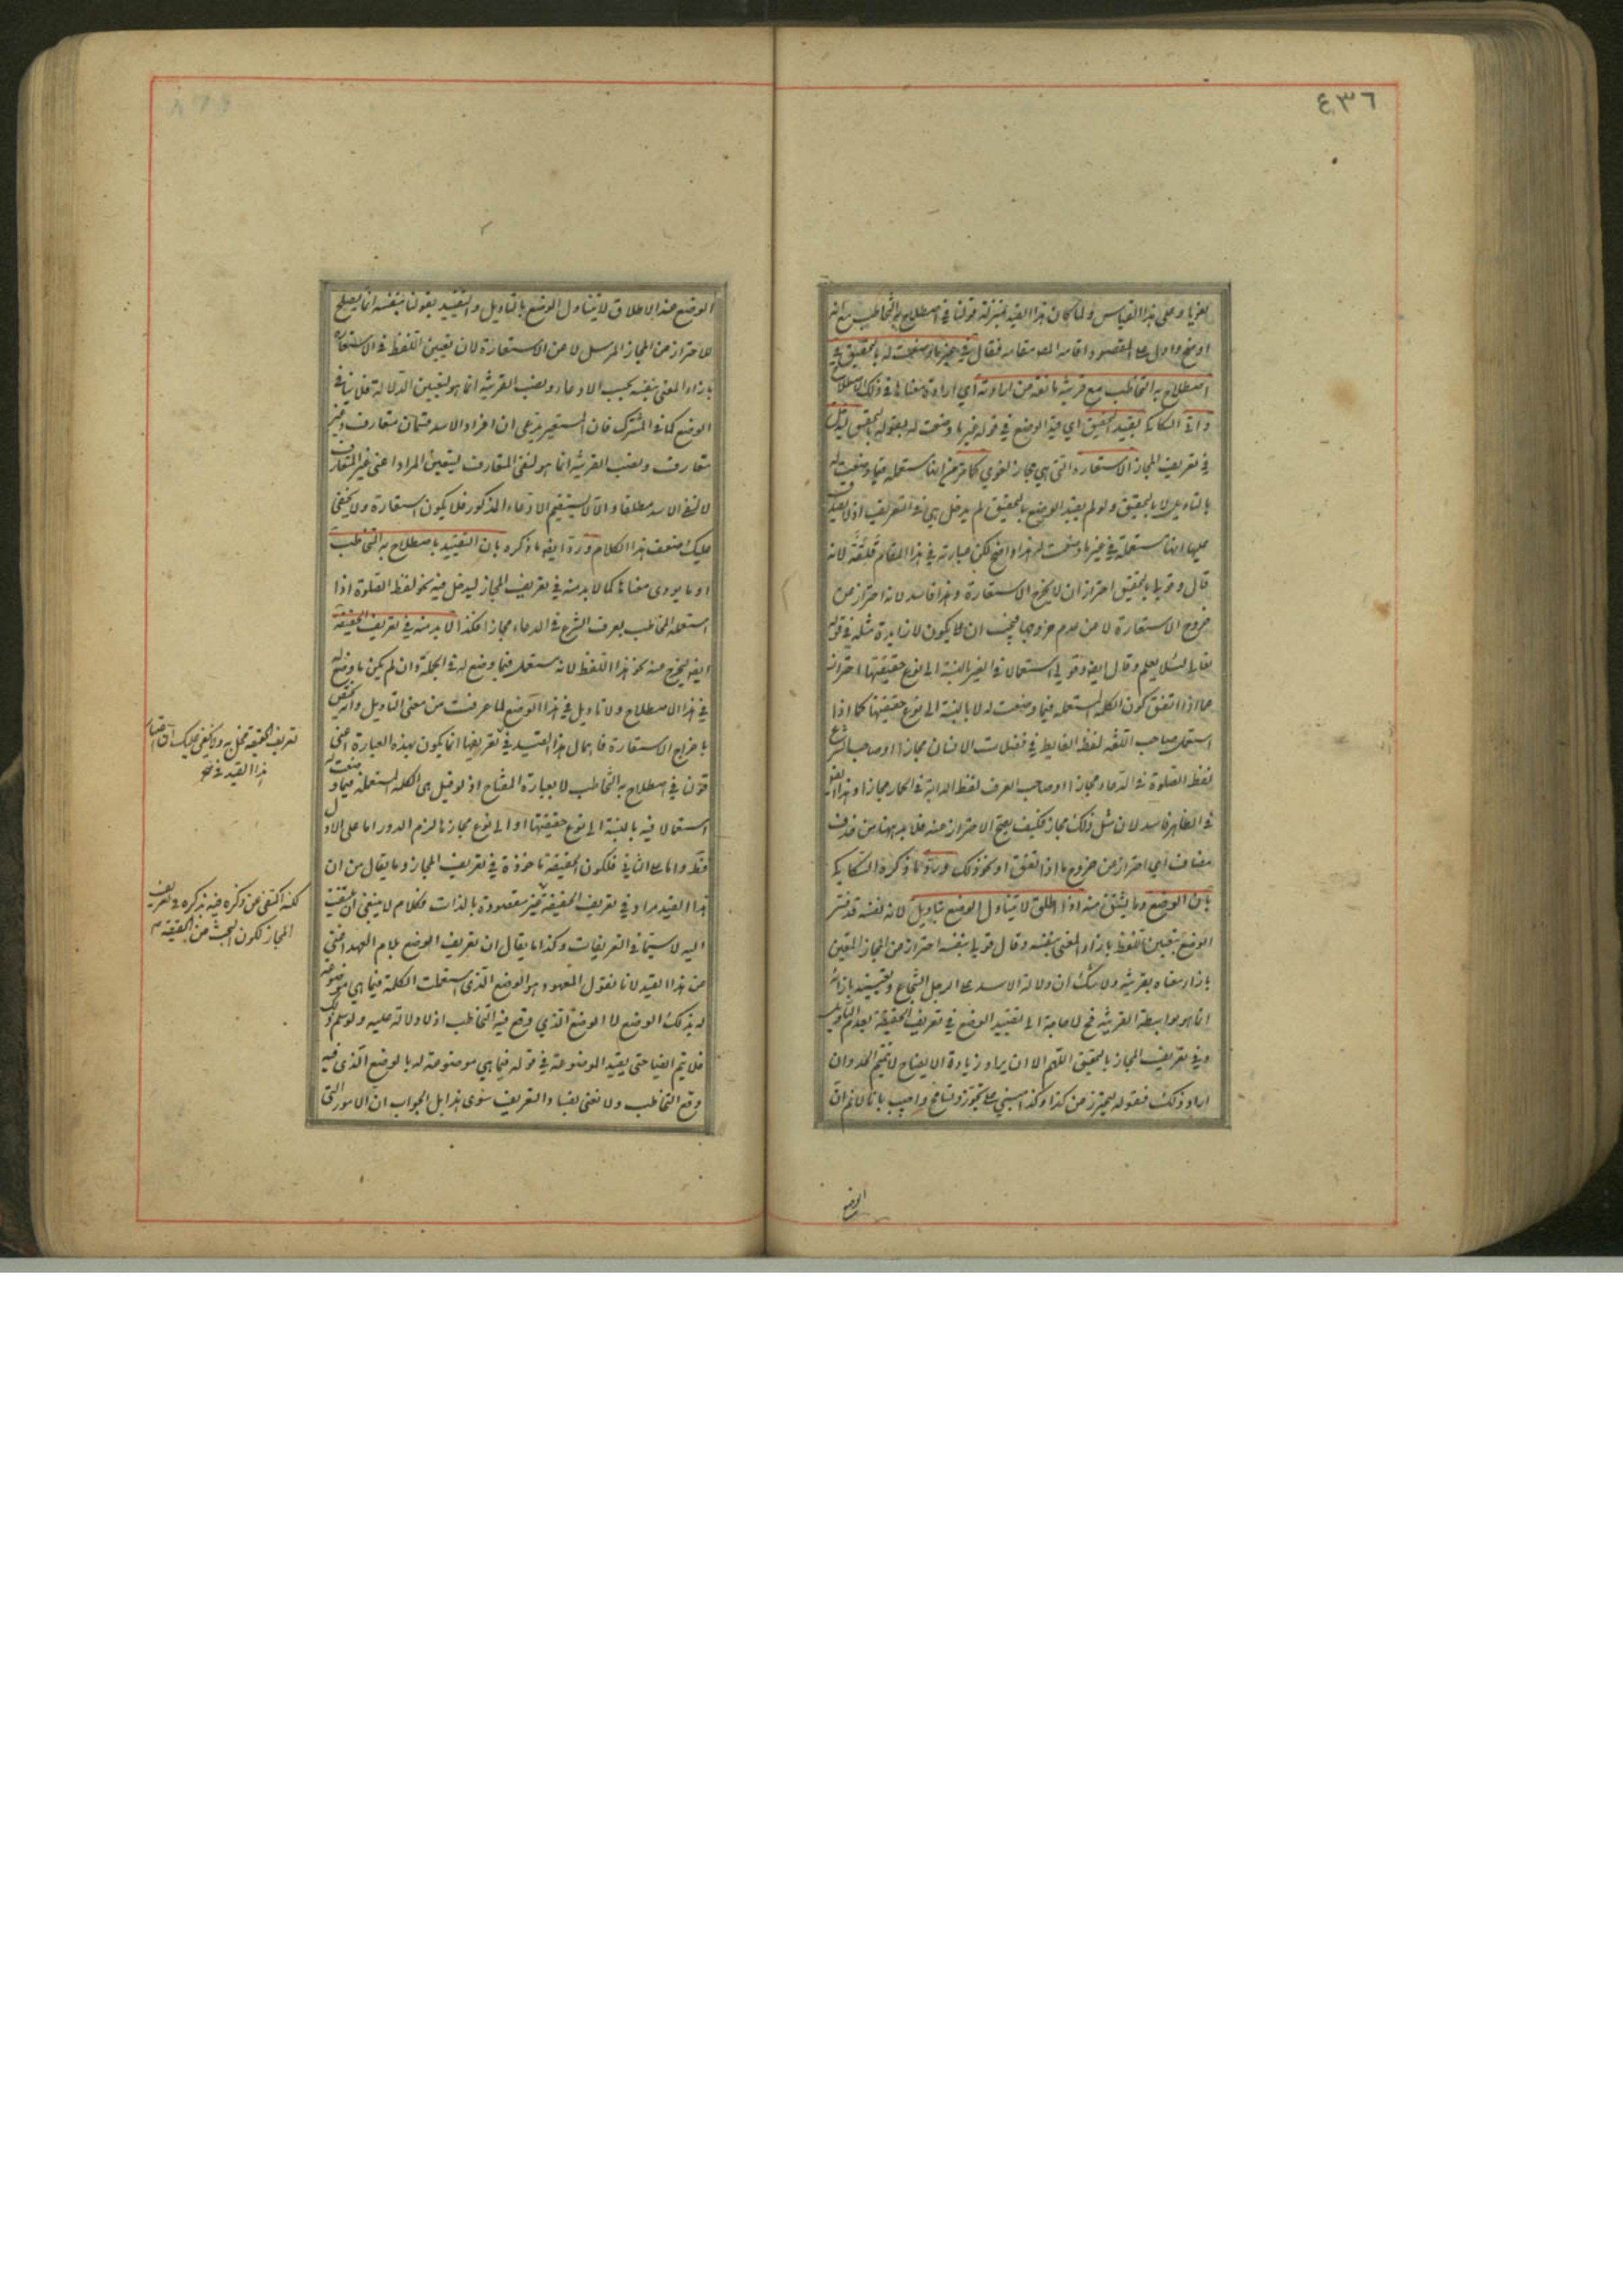 ٤٣٦
لغويا وعلى هذا القياس ولما كان هذا القيد بمنزلة قولنا في اصطلاح به التخاطب مع انه
اوضح وادل على المقصود اقامه المص مقامه فقال في غير ما وضعت له بالتحقيق في
اصطلاح به التخاطب مع قرينة مانعة من ارادته اي ارادة معناها في ذلك الاصطلاح
واتى السكاكي بقيد التحقيق اي قيد الوضع في قوله غير ما وضعت له بقوله بالتحقيق ليدخل
في تعريف المجاز الاستعارة التي هي مجاز لغوي كما مر من انها مستعملة فيما وضعت له
بالتاويل لا بالتحقيق ولو لم يقيد الوضع بالتحقيق لم يدخل هي في التعريف اذ لا يصدق
عليها انها مستعملة في غير ما وضعت له هذا واضح لكن عبارته في هذا المقام قلقة لانه
قال وقولي بالتحقيق احتراز ان لا يخرج الاستعارة وهذا فاسد لانه احتراز من
خروج الاستعارة لا من عدم خروجها فيجب ان يكون لا زايدة مثله في قوله
تعالى لئلا يعلم وقال ايضا وقولي استعمالا في الغير بالنسبة الى نوع حقيقتها احتراز
عما اذا اتفق كون الكلمة مستعملة فيما وضعت له لا بالنسبة الى نوع حقيقتها كما اذا
استعمل صاحب اللغة لفظ الغايط في فضلات الانسان مجازا او صاحب الشرع
لفظ الصلوة في الدعاء مجازا او صاحب العرف لفظ الدابة في الحمار مجازا وهذا ايضا
في الظاهر فاسد لان مثل ذلك مجاز فكيف يصح الاحتراز عنه فلا بد ههنا من حذف
مضاف اي احتراز من خروج ما اذا اتفق او نحو ذلك ورد ما ذكره السكاكي
بان الوضع وما يشتق منه اذا اطلق لا يتناول الوضع بتاويل لانه نفسه قد فسر
الوضع بتعيين اللفظ بازاء المعنى بنفسه وقال قولي بنفسه احتراز من المجاز المعين
بازاء معناه بقرينة ولا شك ان دلالة الاسد على الرجل الشجاع وتعيينه بازائه
انما هو بواسطة القرينة فح لا حاجة الى تقييد الوضع في تعريف الحقيقة بعدم التاويل
وفي تعريف المجاز بالتحقيق اللهم الا ان يراد زيادة الايضاح لا تتميم الحد وان
اراد ذلك فقوله ليحترز من كذا وكذا مبني على تجوز وتسامح واجيب بانا لا نم ان
الوضع
الوضع عند الاطلاق لا يتناول الوضع بالتاويل والتقييد بقولنا بنفسه انما يصلح
للاحتراز من المجاز المرسل لا من الاستعارة لان تعيين اللفظ في الاستعارة
بازاء المعنى بنفسه بحسب الادعاء ونصب القرينة انما هو لتعيين الدلالة فلا ينافي
الوضع كما في المشترك فان المستعير يدعي ان افراد الاسد قسمان متعارف وغير
متعارف ونصب القرينة انما هو لنفي المتعارف ليتعين المراد اعني غير المتعارف
لا لنفي الاسد مطلقا والا لا يستقيم الادعاء المذكور فلا يكون استعارة ولا يخفى
عليك ضعف هذا الكلام ورد ايضا ما ذكره بان التقييد باصطلاح به التخاطب
او ما يودى معناه كما لا بد منه في تعريف المجاز ليدخل فيه نحو لفظ الصلوة اذا
استعمله المخاطب بعرف الشرع في الدعاء مجازا فكذا لا بد منه في تعريف الحقيقة
ايضا ليخرج عنه نحو هذا اللفظ لانه مستعمل فيما وضع له في الجملة وان لم يكن ما وضع له
في هذا الاصطلاح ولا تاويل في هذا الوضع لما عرفت من معنى التاويل وانه يختص
باخراج الاستعارة فاهمال هذا القيد في تعريفها انما يكون بهذه العبارة اعني
قولنا في اصطلاح به التخاطب لا بعبارة المفتاح اذ لو قيل هي الكلمة المستعملة فيما وضعت له
استعمالا فيه بالنسبة الى نوع حقيقتها او الى نوع مجازها لزم الدور اما على الاول
فظ واما على الثاني فلكون الحقيقة ماخوذة في تعريف المجاز وما يقال من ان
هذا القيد مراد في تعريف الحقيقة غير مقصودة بالذات فكلام لا ينبغي ان يلتفت
اليه لا سيما في التعريفات وكذا ما يقال ان تعريف الوضع بلام العهد اغنى
عن هذا القيد لانا نقول المعهود هو الوضع الذي استعملت الكلمة فيما هي موضوعة
له بذلك الوضع لا الوضع الذي وقع فيه التخاطب اذ لا دلالة عليه ولو سلم ذلك
فلا يتم ايضا حتى يقيد الموضوعة في قوله فيما هي موضوعة له بالوضع الذي فيه
وقع التخاطب ولا نعني بفساد التعريف سوى هذا بل الجواب ان الامور التي
تعريف الحقيقة مخل به ولا يخفى عليك ان اعتبار
هذا القيد في نحو
لكنه اكتفى عن ذكره فيه بذكره في تعريف
المجاز لكون البحث من الحقيقة